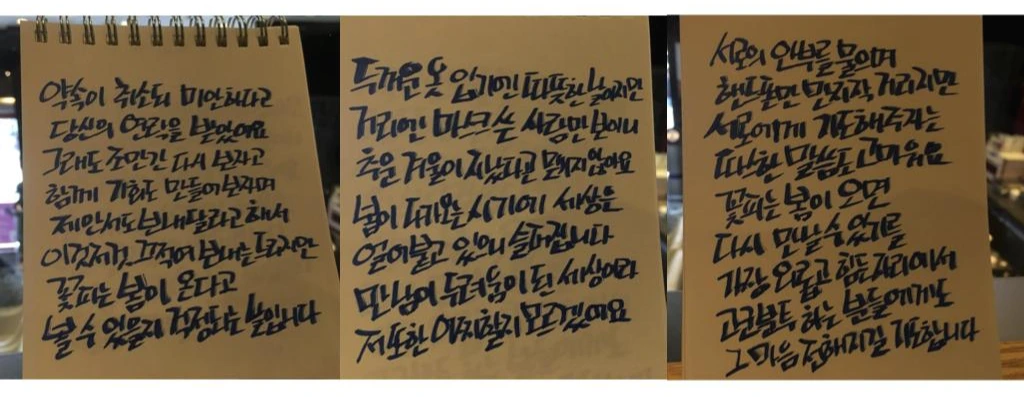 약속이 취소되 미안하다고
당신의 연락을 받았어요
그래도 조만간 다시 보자고
함께 기회도 만들어보자며
제안서도 보내달라고 해서
이것저것 끄적여 보내는 드리지만
꽃피는 봄이 온다고
볼 수 있을지 걱정되는 밤입니다
두꺼운 옷 입기엔 따뜻한 날이지만
거리엔 마크쓴 사람만 보이니
추운 겨울이 지났다고 믿기지 않아요
봄이 다가오는 시기에 세상은
얼어붙고 있으니 슬퍼집니다
만남이 두려움이 된 세상이라
저 또한 어찌할지 모르겠어요
서로의 안부를 물으며
핸드폰만 만지작 거리지만
서로에게 기도해주자는
따스한 말씀도 고마워요
꽃피는 봄이 오면
다시 만날 수 있기를
가장 외롭고 힘든 자리에서
고군분투 하는 분들에게도
그 마음 전해지길 기도합니다